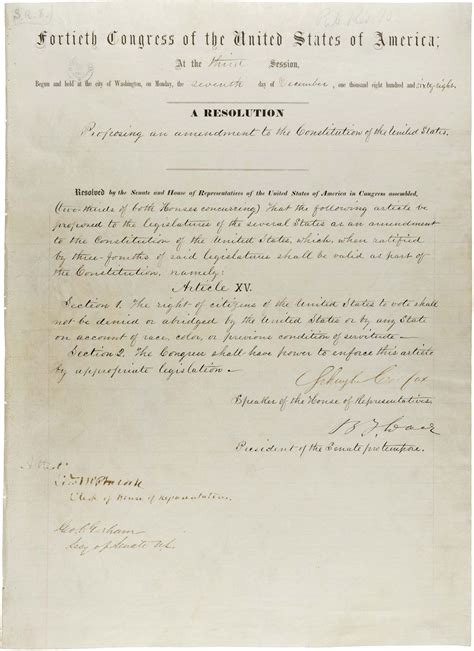 S.R.8.
Fortieth Congress of the United States of America;
At the third Session,
Begun and held at the city of Washington, on Monday, the seventh day of December, one thousand eight hundred and sixty-eight.
A RESOLUTION
Proposing an amendment to the Constitution of the United States.
Resolved by the Senate and House of Representatives of the United States of America in Congress assembled,
(two-thirds of both Houses concurring) That the following article be
proposed to the legislatures of the several States as an amendment
to the Constitution of the United States, which, when ratified
by three-fourths of said legislatures shall be valid as part of
the Constitution, namely:
Article XV.
Section 1. The right of citizens of the United States to vote shall
not be denied or abridged by the United States or by any State
on account of race, color, or previous condition of servitude—
Section 2. The Congress shall have power to enforce this article
by appropriate legislation—
Schuyler Colfax
Speaker of the House of Representatives.
B F Wade
President of the Senate protempore.
Attest
Clerk of House of Representatives.
Geo. C. Gorham
Secy of Senate U.S.